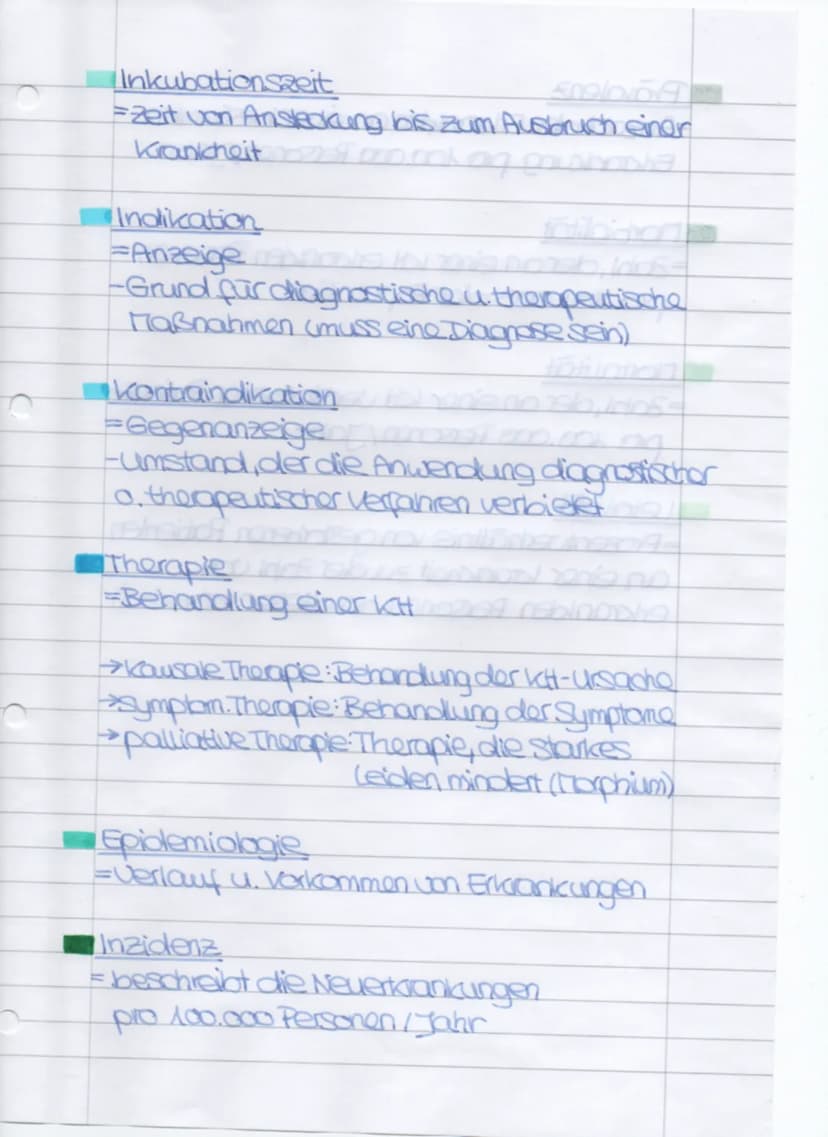 Inkubationszeit
=Zeit von Ansteckung bis zum Ausbruch einer
Krankheit
Indikation
=Anzeige
-Grund für diagnostische u. therapeutische
Maßnahmen (muss eine Diagnose sein)
Kontraindikation
=Gegenanzeige
-Umstand, der die Anwendung diagnostischer
o. therapeutischer Verfahren verbietet
Therapie
=Behandlung einer KH
→Kausale Therapie: Behandlung der KH-Ursache
→Symptom. Therapie: Behandlung der Symptome
→palliative Therapie: Therapie, die starkes
Leiden mindert (Morphium)
Epidemiologie
=Verlauf u. Vorkommen von Erkrankungen
Inzidenz
= beschreibt die Neuerkrankungen
pro 100.000 Personen / Jahr